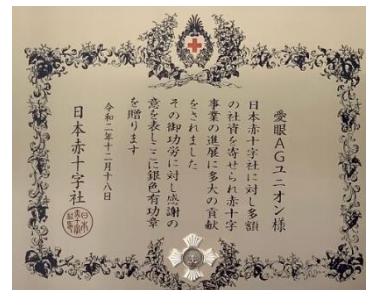 愛眼AGユニオン様
日本赤十字社に対し多額
の社資を寄せられ赤十字
事業の進展に多大の貢献
をされました
その御功労に対し感謝の
意を表しここに銀色有功章
を贈ります
令和二年十二月十八日
日本赤十字社